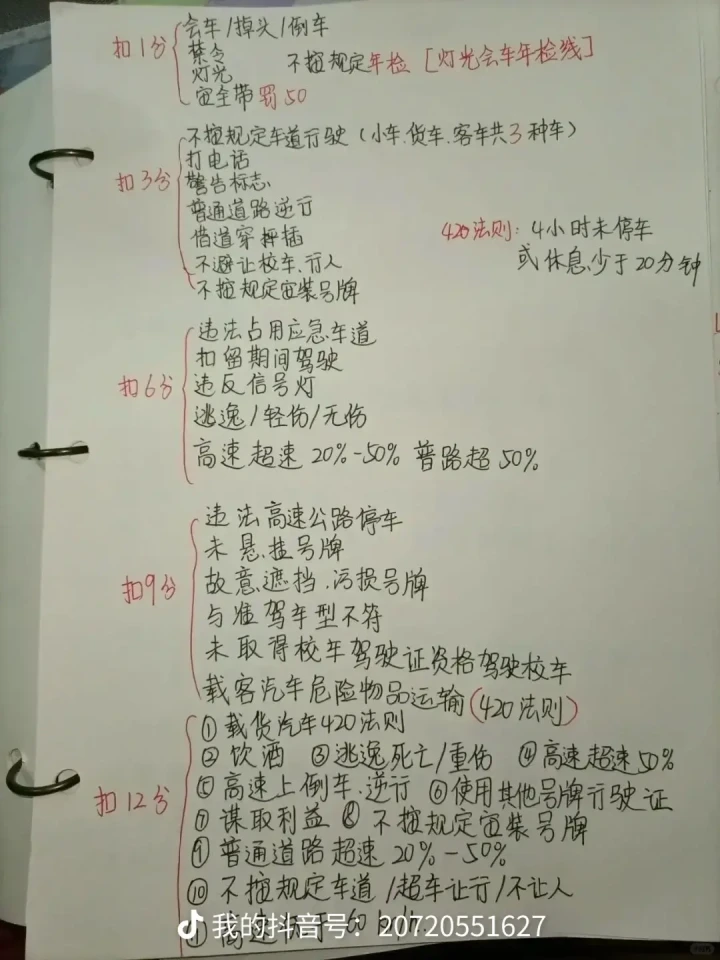 扣1分
会车/掉头/倒车
禁令
灯光
不按规定年检 [灯光会车年检线]
安全带罚50
扣3分
不按规定车道行驶（小车、货车、客车共3种车）
打电话
警告标志
普通道路逆行
借道穿押插
不避让校车、行人
不按规定安装号牌
420法则：4小时未停车
或休息少于20分钟
扣6分
违法占用应急车道
扣留期间驾驶
违反信号灯
逃逸/轻伤/无伤
高速超速20%-50% 普路超50%
扣9分
违法高速公路停车
未悬挂号牌
故意遮挡、污损号牌
与准驾车型不符
未取得校车驾驶证资格驾驶校车
载客汽车危险物品运输(420法则)
扣12分
①载货汽车420法则
②饮酒 ③逃逸死亡/重伤 ④高速超速50%
⑤高速上倒车、逆行 ⑥使用其他号牌行驶证
⑦谋取利益 ⑧不按规定安装号牌
⑨普通道路超速20%-50%
⑩不按规定车道/超车让行/不让人
我的抖音号：20720551627
高速低于60